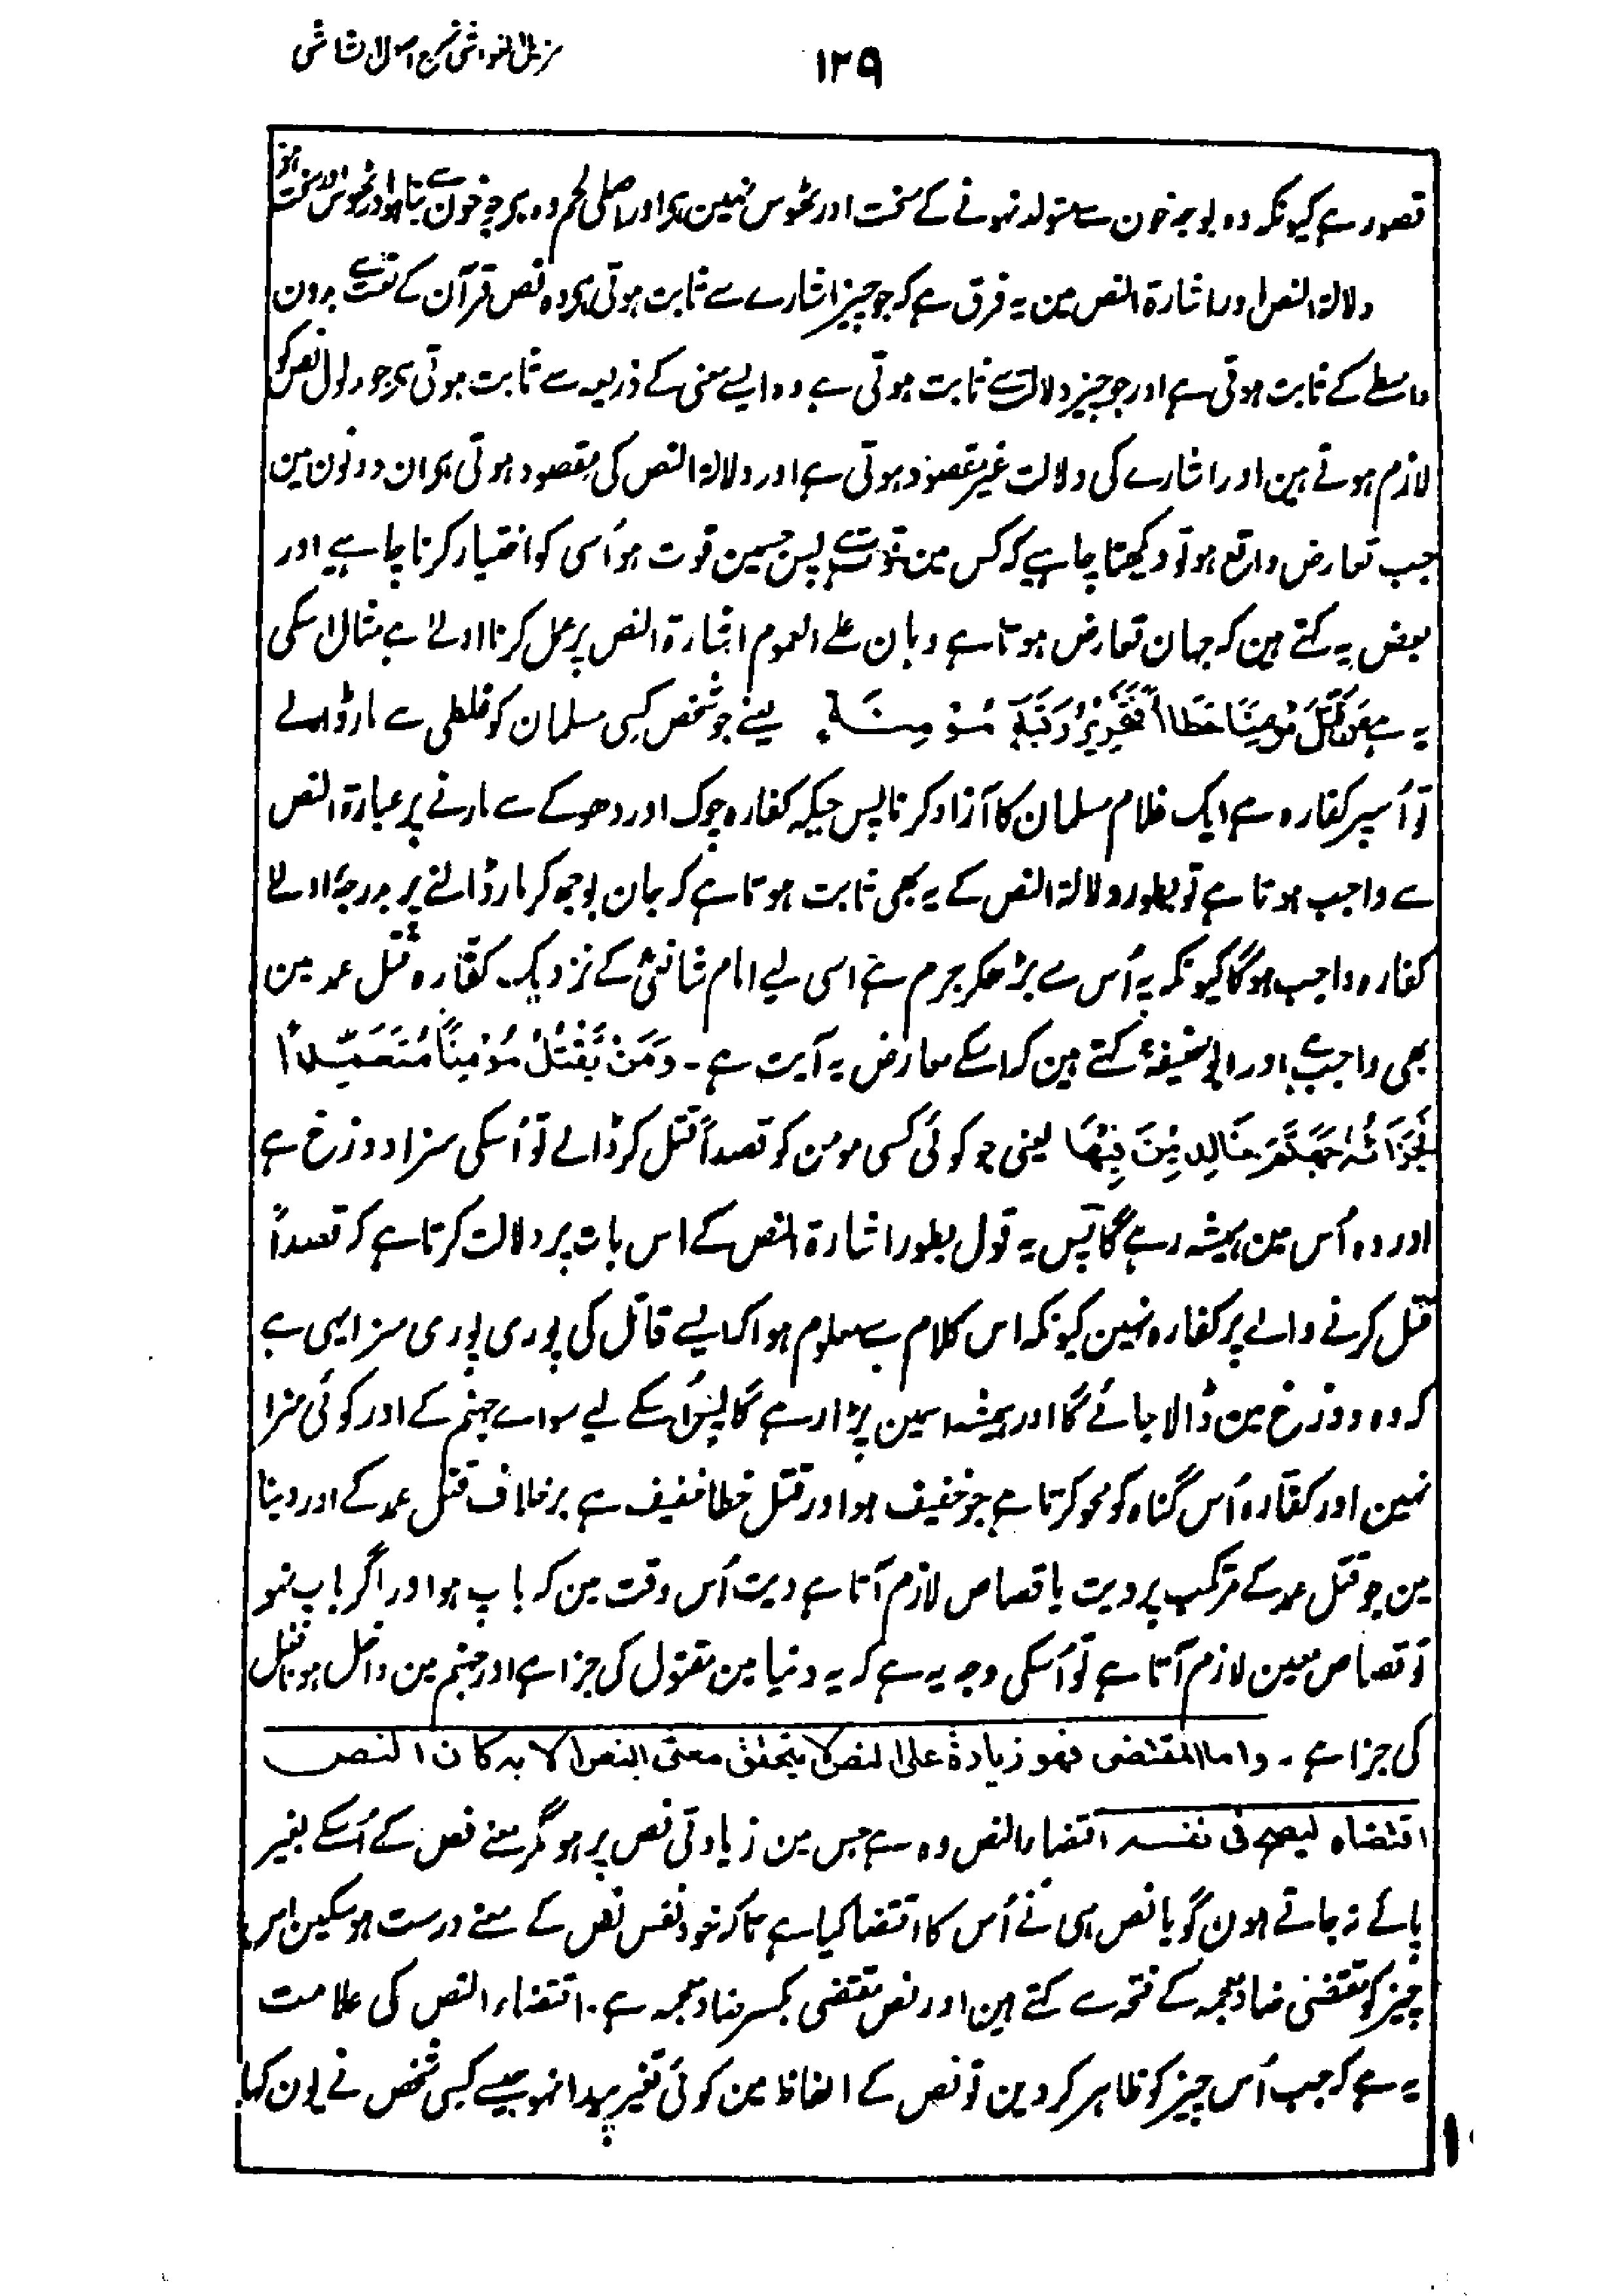 ۱۳۹
مزیل الغواشی شرح اصول الشاشی
قصور ہے کیونکہ وہ بوجہ خون سے متولد نہونے کے سخت اور ٹھوس نہین ہی اور اصلی لحم وہ ہی جو خون سے بنا ہو اور ٹھوس اور سخت ہو
دلالۃ النص اور اشارۃ النص مین یہ فرق ہے کہ جو چیز اشارے سے ثابت ہوتی ہی وہ نص قرآن کے نفس سے بدون
واسطے کے ثابت ہوتی ہے اور جو چیز دلالت سے ثابت ہوتی ہے وہ ایسے معنی کے ذریعہ سے ثابت ہوتی ہی جو مدلول نص کو
لازم ہوتے ہین اور اشارے کی دلالت غیر مقصود ہوتی ہے اور دلالۃ النص کی مقصود ہوتی ہی ان دونون مین
جب تعارض واقع ہو تو دیکھنا چاہیے کہ کس مین قوت ہے پس جسمین قوت ہو اُسی کو اختیار کرنا چاہیے اور
بعض یہ کہتے ہین کہ جہان تعارض ہوتا ہے وہان علے العموم اشارۃ النص پر عمل کرنا اولے ہے مثال اسکی
یہ ہے مَن قَتَلَ مُؤمِنًا خَطَأً فَتَحْرِیْرُ رَقَبَۃٍ مُؤْمِنَۃٍ یعنے جو شخص کسی مسلمان کو غلطی سے مار ڈالے
تو اُسپر کفارہ ہے ایک غلام مسلمان کا آزاد کرنا پس جبکہ کفارہ چوک اور دھوکے سے مارنے پر عبارۃ النص
سے واجب ہوتا ہے تو بطور دلالۃ النص کے یہ بھی ثابت ہوتا ہے کہ جان بوجھ کر مار ڈالنے پر بدرجۂ اولے
کفارہ واجب ہوگا کیونکہ یہ اُس سے بڑھکر جرم ہے اسی لیے امام شافعیؒ کے نزدیک کفّارہ قتل عمد مین
بھی واجب ہے اور ابو حنیفہؒ کہتے ہین کہ اسکے معارض یہ آیت ہے ۔ وَمَنْ یَّقْتُلْ مُؤْمِنًا مُتَعَمِّداً
فَجَزَائُہٗ جَھَنَّمَ خَالِدِیْنَ فِیْھَا یعنی جو کوئی کسی مومن کو قصداً قتل کر ڈالے تو اُسکی سزا دوزخ ہے
اور وہ اُس مین ہمیشہ رہے گا پس یہ قول بطور اشارۃ النص کے اس بات پر دلالت کرتا ہے کہ قصداً
قتل کرنے والے پر کفارہ نہین کیونکہ اس کلام سے معلوم ہوا کہ ایسے قاتل کی پوری پوری سزا یہی ہے
کہ وہ دوزخ مین ڈالا جائے گا اور ہمیشہ اسمین پڑا رہے گا پس اُسکے لیے سواے جہنم کے اور کوئی سزا
نہین اور کفّارہ اُس گناہ کو محو کرتا ہے جو خفیف ہو اور قتل خطا خفیف ہے برخلاف قتل عمد کے اور دنیا
مین جو قتل عمد کے مرتکب پر دیت یا قصاص لازم آتا ہے دیت اُس وقت مین کہ باپ ہو اور اگر باپ نہو
تو قصاص معین لازم آتا ہے تو اُسکی وجہ یہ ہے کہ یہ دنیا مین مقتول کی جزا ہے اور جہنم مین داخل ہونا قتل
کی جزا ہے ۔ واما المقتضی فھو زیادۃ علی النص لا یتحقق معنی النص الا بہ کان النص
اقتضاہ لیصح فی نفسہ اقتضاء النص وہ ہے جس مین زیادتی نص پر ہو مگر معنے نص کے اُسکے بغیر
پائے نہ جاتے ہون گویا نص ہی نے اُس کا اقتضا کیا ہے تاکہ خود نفس نص کے معنے درست ہوسکین اس
چیز کو مقتضیٰ ضاد معجمہ کے فتحہ سے کہتے ہین اور نص مقتضی بکسر ضاد معجمہ ہے ۔ اقتضاء النص کی علامت
یہ ہے کہ جب اُس چیز کو ظاہر کر دین تو نص کے الفاظ مین کوئی تغیر پیدا نہو جیسے کسی شخص نے یون کہا